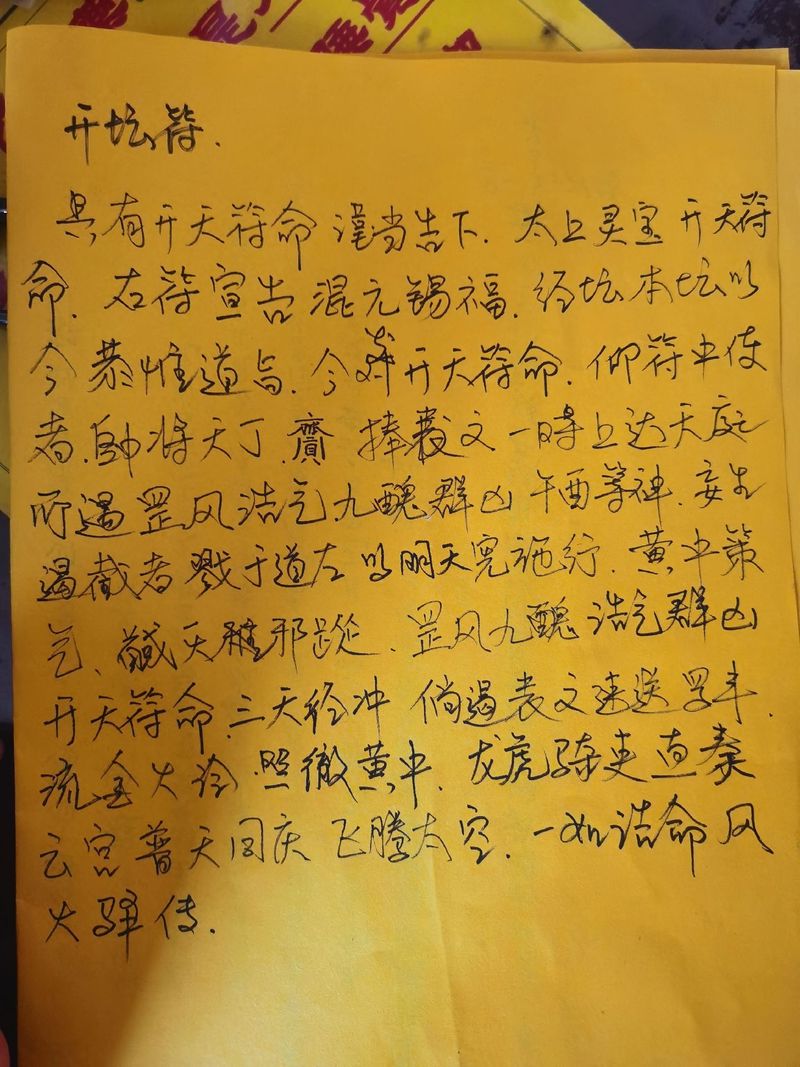 开坛符.
具有开天符命 谨当告下. 太上灵宝 开天符
命. 右符宣告 混元锡福. 经坛本坛以
今 恭惟道旨. 今奉开天符命. 仰符史使
者. 帅将天丁. 齎 捧表文 一時上达天庭
所遇罡风浩气. 九醜群凶 午酉等神. 妄生
遏截者 戮于道左 以明天宪施行. 黄中策
气. 馘天 邪踪. 罡风九醜 浩气群凶
开天符命. 三天 冲 倘遇表文速送
流金火铃 照徹黄中. 龙虎骑吏 直奏
云宫 普天同庆 飞腾太空. 一如诰命 风
火驿传.